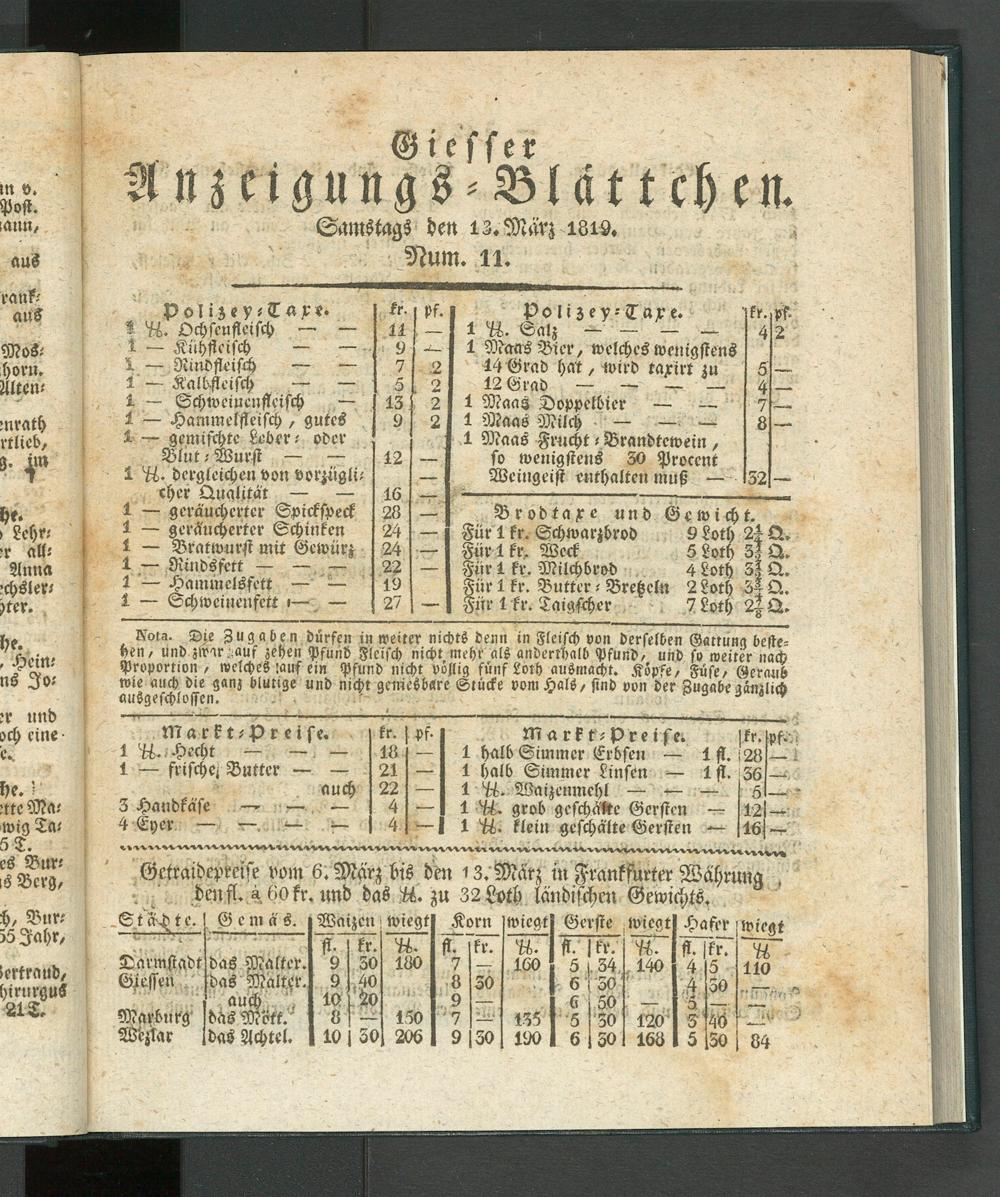 Giesser
Anzeigungs-Blättchen.
Samstags den 13. März 1819.
Num. 11.
Polizey-Taxe. kr. pf.
1 ℔. Ochsenfleisch — — 11 —
1 — Kühfleisch — — 9 —
1 — Rindfleisch — — 7 2
1 — Kalbfleisch — — 5 2
1 — Schweinenfleisch — 13 2
1 — Hammelfleisch, gutes 9 2
1 — gemischte Leber- oder
Blut-Wurst — — 12 —
1 ℔. dergleichen von vorzügli-
cher Qualität — — 16 —
1 — geräucherter Spickspeck 28 —
1 — geräucherter Schinken 24 —
1 — Bratwurst mit Gewürz 24 —
1 — Rindsfett — — 22 —
1 — Hammelsfett — 19
1 — Schweinenfett — 27 —
Polizey-Taxe. kr. pf.
1 ℔. Salz — — — — 4 2
1 Maas Bier, welches wenigstens
14 Grad hat, wird taxirt zu 5 —
12 Grad — — — — 4 —
1 Maas Doppelbier — — 7 —
1 Maas Milch — — — 8 —
1 Maas Frucht-Brandtewein,
so wenigstens 30 Procent
Weingeist enthalten muß — 32 —
Brodtaxe und Gewicht.
Für 1 kr. Schwarzbrod 9 Loth Q.
Für 1 kr. Weck 5 Loth Q.
Für 1 kr. Milchbrod 4 Loth Q.
Für 1 kr. Butter-Bretzeln 2 Loth Q.
Für 1 kr. Taigscher 7 Loth 2⅞ Q.
Nota. Die Zugaben dürfen in weiter nichts denn in Fleisch von derselben Gattung beste-
hen, und zwar auf zehen Pfund Fleisch nicht mehr als anderthalb Pfund, und so weiter nach
Proportion, welches auf ein Pfund nicht völlig fünf Loth ausmacht. Köpfe, Füse, Geraub
wie auch die ganz blutige und nicht geniesbare Stücke vom Hals, sind von der Zugabe gänzlich
ausgeschlossen.
Markt-Preise. kr. pf.
1 ℔. Hecht — — — 18 —
1 — frische Butter — — 21 —
auch 22 —
3 Handkäse — — — 4 —
4 Eyer — — — — 4 —
Markt-Preise. kr. pf.
1 halb Simmer Erbsen — 1 fl. 28 —
1 halb Simmer Linsen — 1 fl. 36 —
1 ℔. Waizenmehl — — 5 —
1 ℔. grob geschälte Gersten — 12 —
1 ℔. klein geschälte Gersten — 16 —
Getraidepreise vom 6. März bis den 13. März in Frankfurter Währung
den fl. à 60 kr. und das ℔. zu 32 Loth ländischen Gewichts.
Städte. Gemäs. Waizen wiegt Korn wiegt Gerste wiegt Hafer wiegt
fl. kr. ℔. fl. kr. ℔. fl. kr. ℔. fl. kr. ℔
Darmstadt das Malter. 9 30 180 7 — 160 5 34 140 4 5 110
Giessen das Malter. 9 40 8 30 6 30 4 30 —
auch 10 20 9 — 6 50 — 5 —
Marburg das Mött. 8 — 150 7 — 135 5 30 120 3 40 —
Wezlar das Achtel. 10 30 206 9 30 190 6 30 168 5 30 84
nn v.
Post.
aus
aus
Mos-
horn.
Alten-
enrath
rtlieb,
g. im
he.
Lehr-
er all-
Anna
echsler-
hter.
he.
, Hein-
ns Jo-
er und
och eine
he.
ette Ma-
owig Ta-
5 T.
es Bur-
s Berg,
ch, Bur-
55 Jahr,
Bertraud,
hirurgus
21 T.